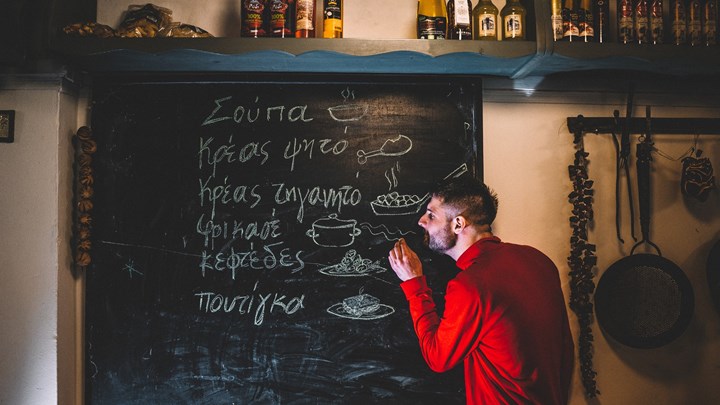 Σούπα
Κρέας ψητό
Κρέας τηγανητό
φρικασέ
κεφτέδες
πουτίγκα